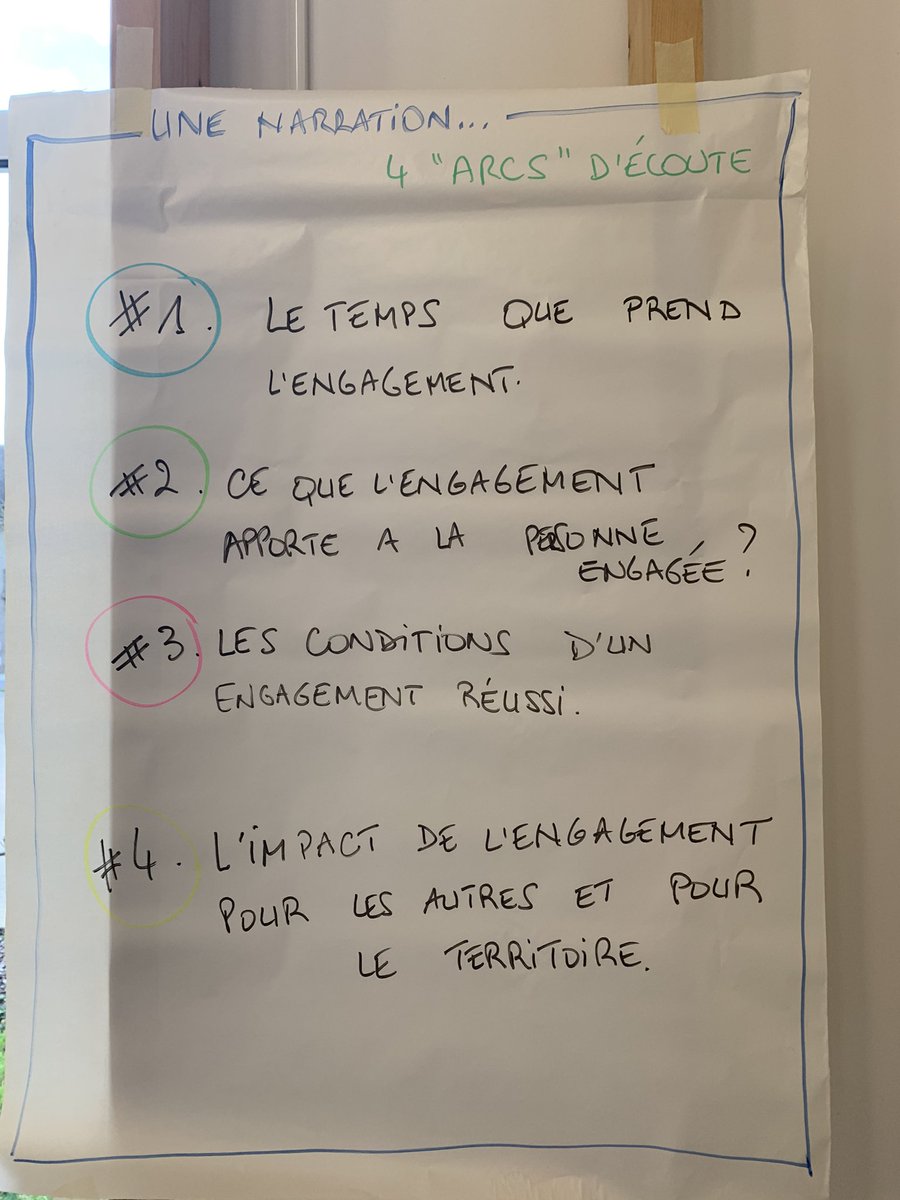 UNE NARRATION...
4 "ARCS" D'ÉCOUTE
#1. LE TEMPS QUE PREND
L'ENGAGEMENT.
#2. CE QUE L'ENGAGEMENT
APPORTE A LA PERSONNE
ENGAGÉE ?
#3. LES CONDITIONS D'UN
ENGAGEMENT RÉUSSI.
#4. L'IMPACT DE L'ENGAGEMENT
POUR LES AUTRES ET POUR
LE TERRITOIRE.